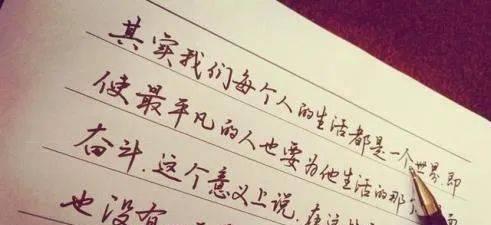 其实我们每个人的生活都是一个世界,即
使最平凡的人也要为他生活的那个
奋斗.这个意义上说,在这
也没有